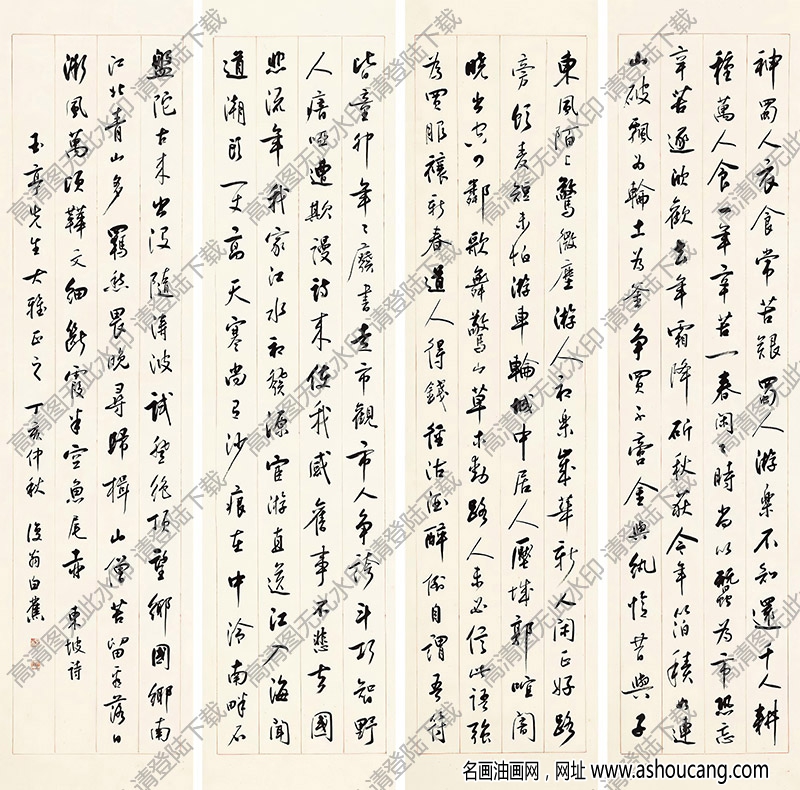 神蜀人衣食常苦艱蜀人游樂不知還千人耕
種萬人食一年辛苦一春閑閑時尚以蠶為市恐忘
辛苦逐欣歡去年霜降斫秋荻今年箔積如連
山破瓢為輪土為釜爭買不啻金與紈憶昔與子
東風陌々驚微塵游人初樂歲華新人閑正好路
旁飲麥短未怕游車輪城中居人壓城郭喧闐
曉出空四鄰歌舞驚山草木動路人未必信此語強
為買服禳新春道人得錢徑沽酒醉倒自謂吾符
皆童丱年々廢書走市觀市人爭誇斗巧智野
人瘖啞遭欺謾詩來使我感舊事不悲去國
悲流年我家江水初發源宦游直送江入海聞
道潮頭一丈高天寒尚有沙痕在中泠南畔石
盤陀古來出沒隨濤波試登絕頂望鄉國鄉南
江北青山多羈愁畏晚尋歸楫山僧苦留看落日
微風萬頃鞾文細斷霞半空魚尾赤 東坡詩
玉亭先生大雅正之 丁亥仲秋 復翁白蕉
高清图无此水印 请登陆下载
名画油画网，网址 www.ashoucang.com